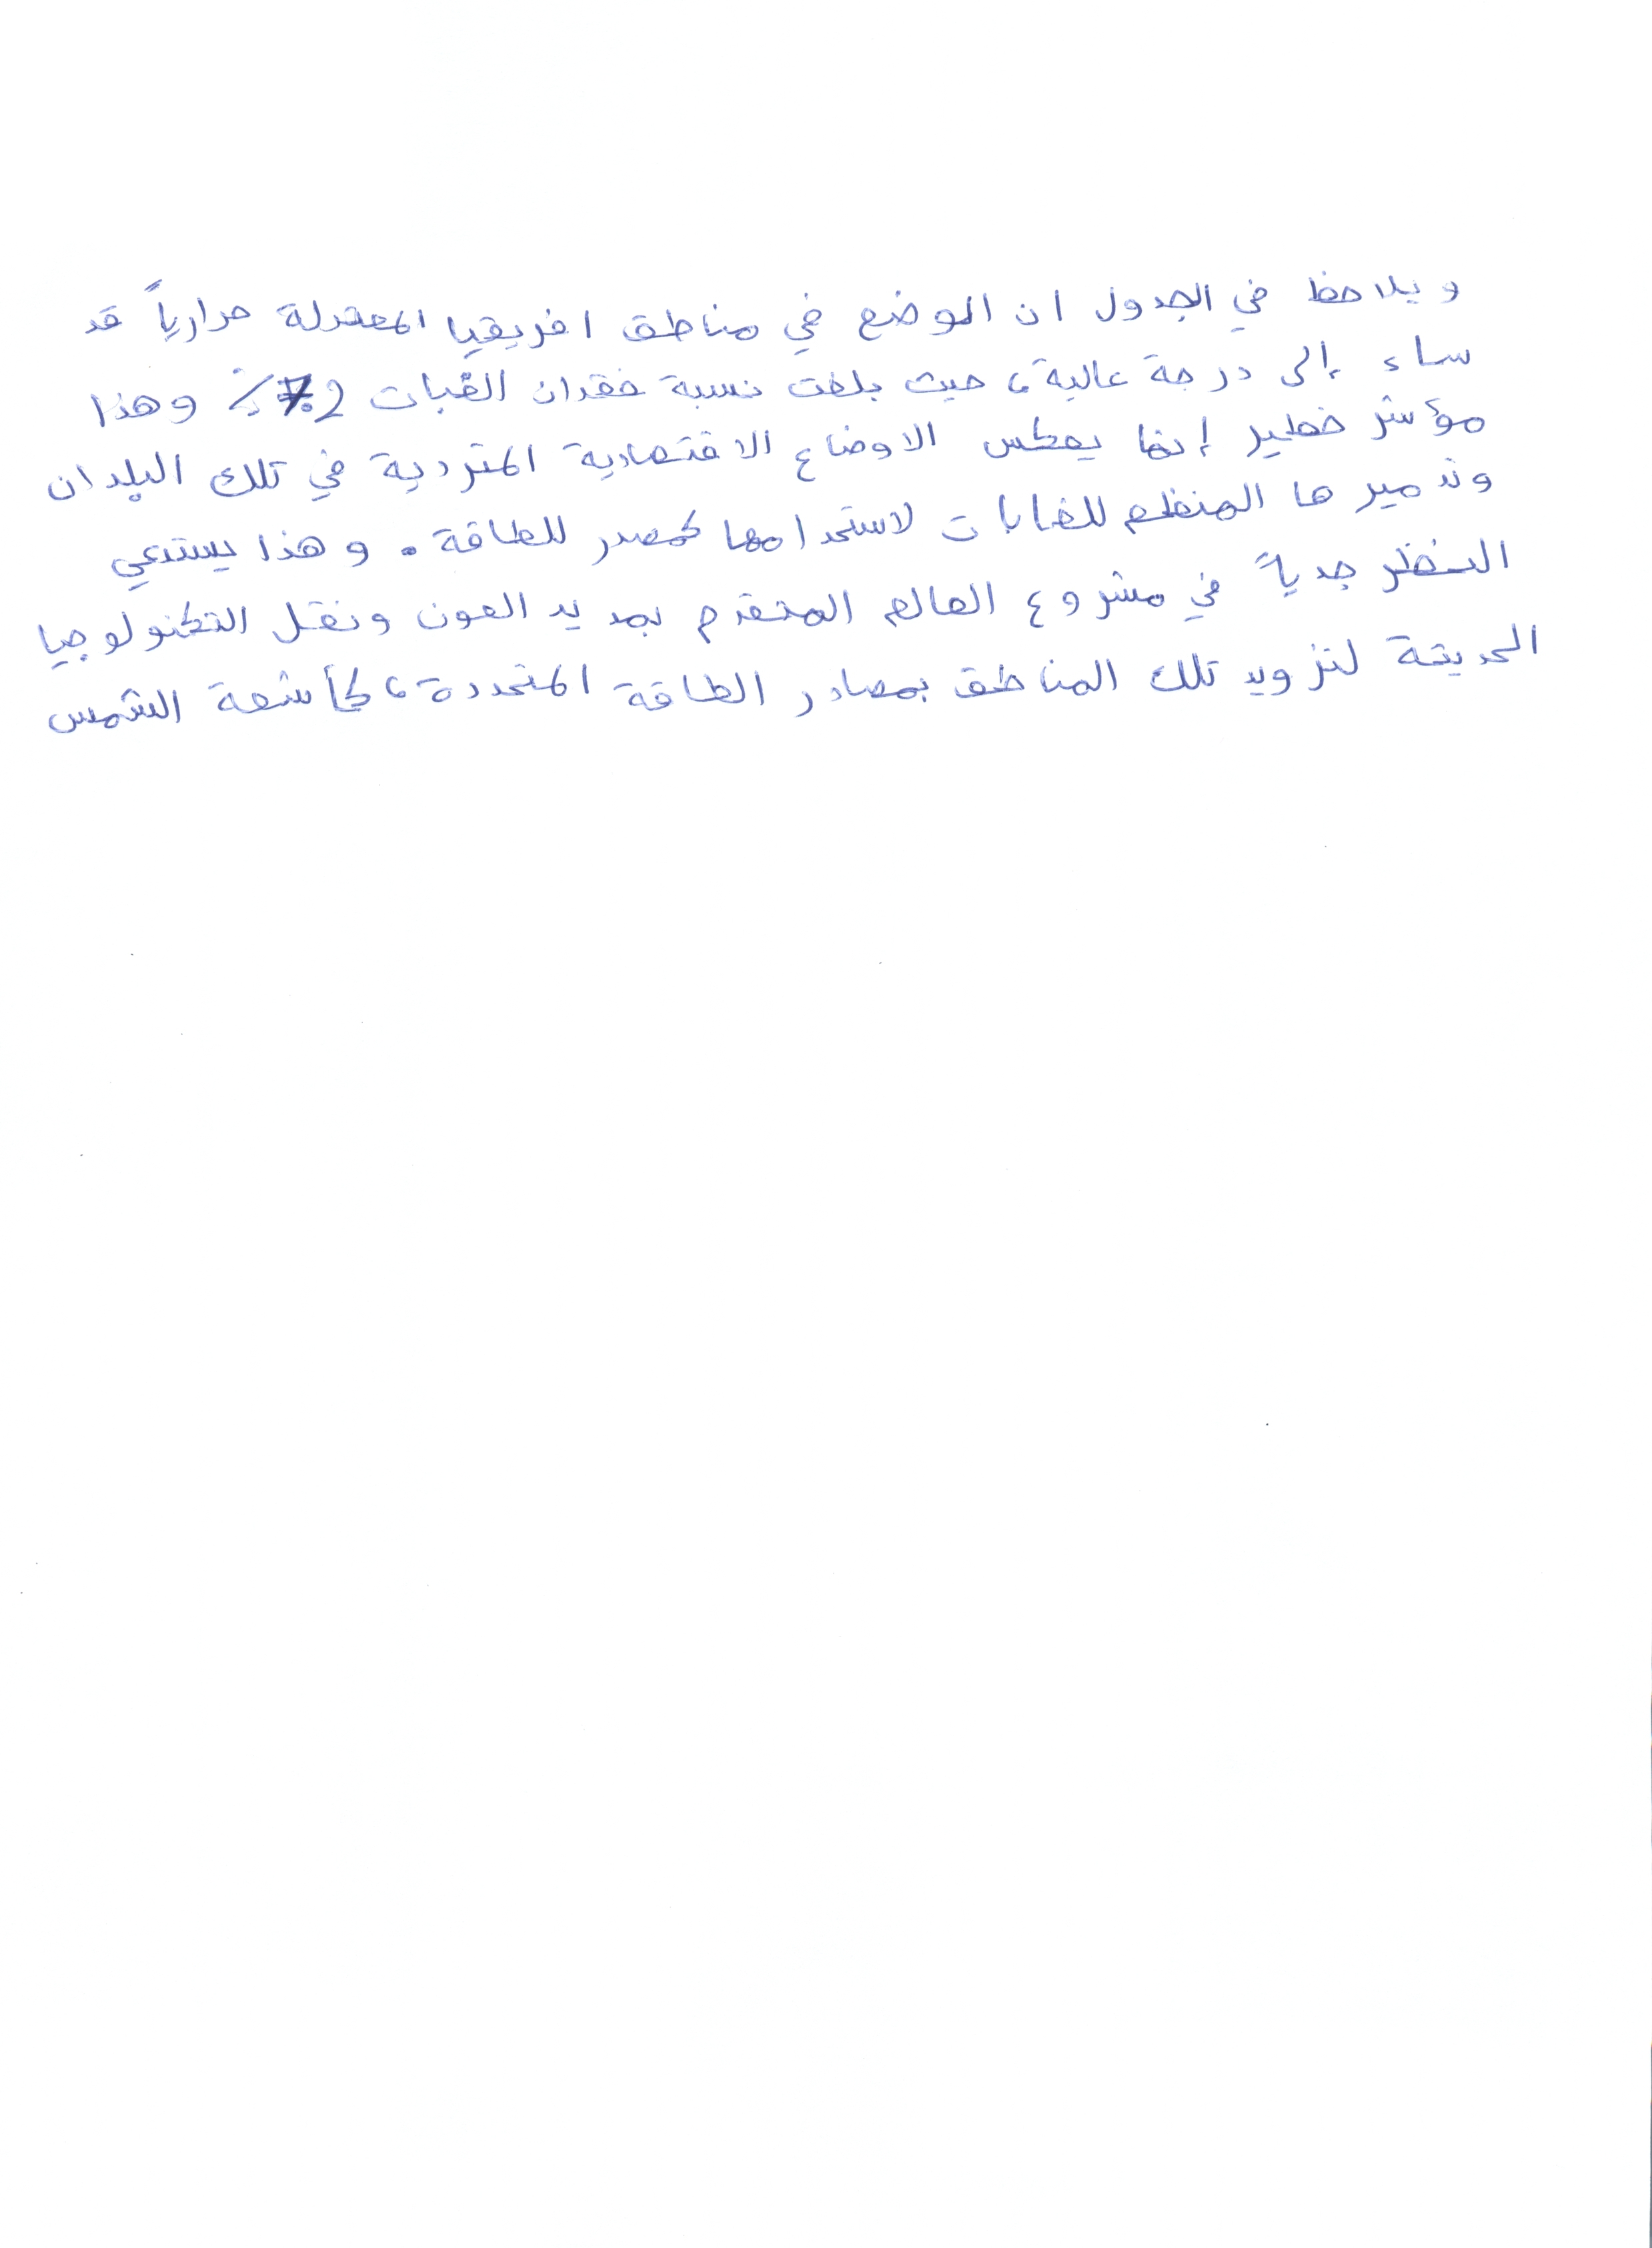 ويلاحظ في الجدول ان الوضع في مناطق افريقيا المعتدلة حرارياً قد
ساء إلى درجة عالية، حيث بلغت نسبة فقدان الغبات وهذا
مؤشر خطير إنما يعكس الاوضاع الاقتصادية المتردية في تلك البلدان
وتدميرها المنظم للغابات لاستخدامها كمصدر للطاقة. وهذا يستدعي
النظر جدياً في مشروع العالم المتقدم بمد يد العون ونقل التكنولوجيا
الحديثة لتزويد تلك المناطق بمصادر الطاقة المتجددة، كأشعة الشمس